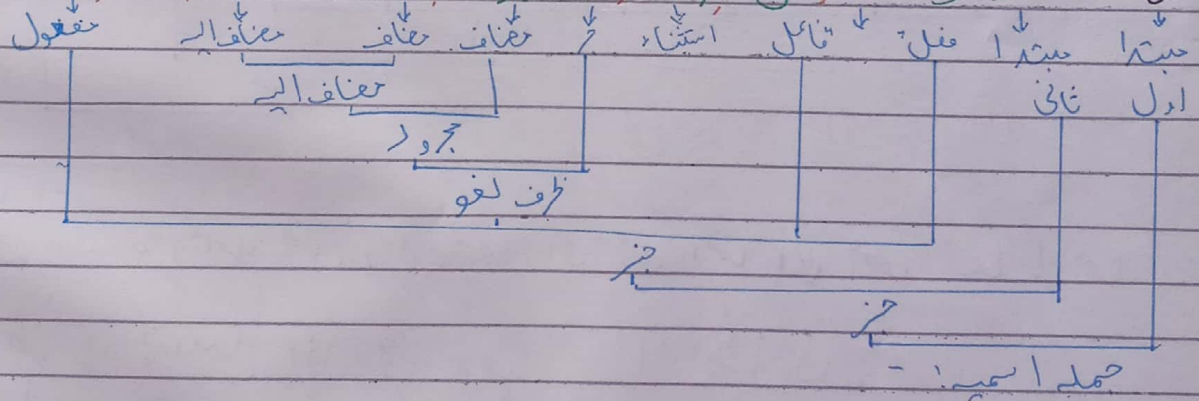 مبتدا مبتدا فعل فاعل استثناء جر مضاف مضاف مضاف الیہ مفعول
اول ثانی
مضاف الیہ
مجرور
ظرف لغو
خبر
خبر
جملہ اسمیہ :-